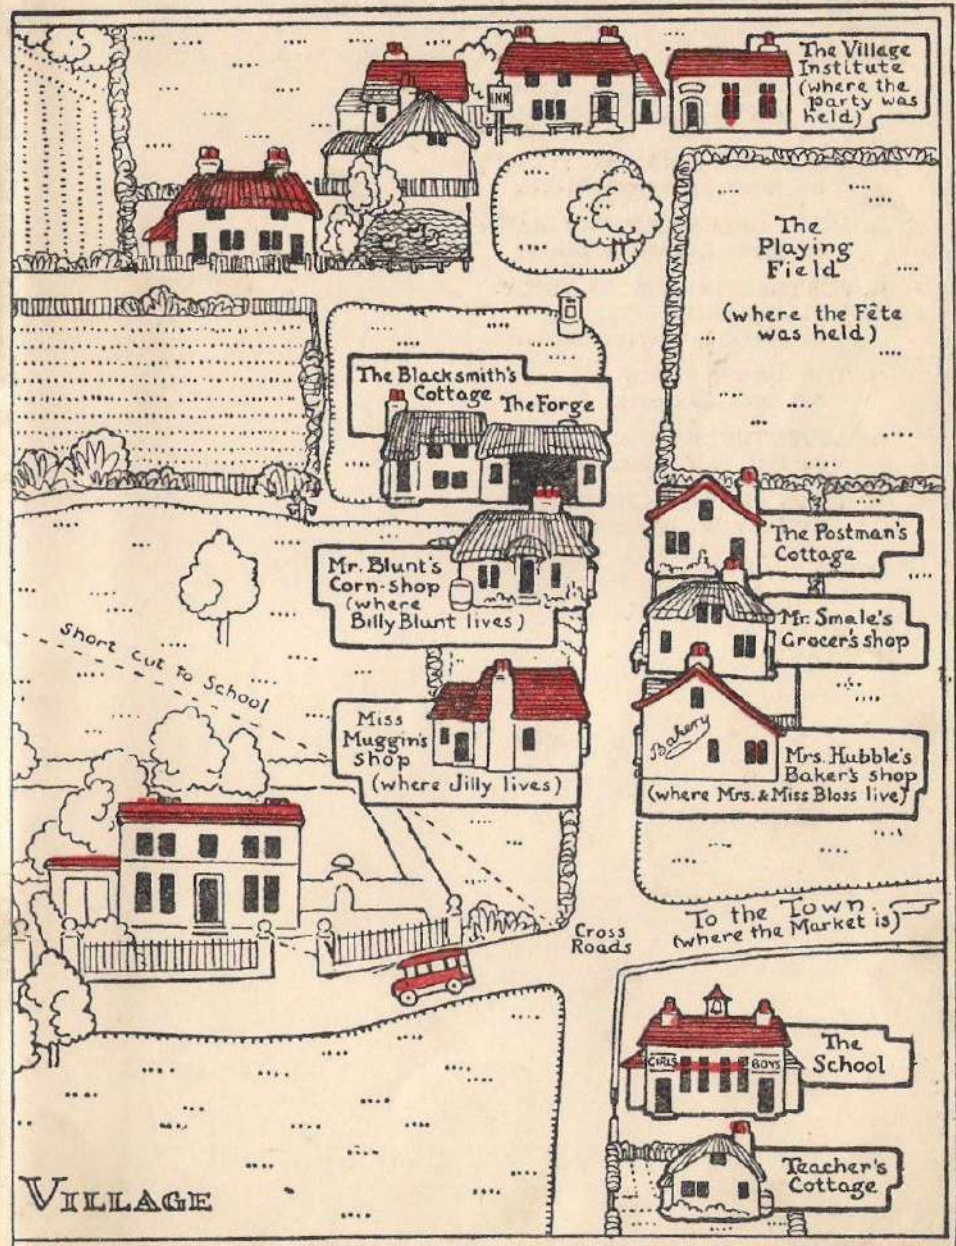 The Village
Institute
(where the
party was
held)
INN
The
Playing
Field
(where the Fête
was held)
The Blacksmith's
Cottage
The Forge
The Postman's
Cottage
Mr. Blunt's
Corn-shop
(where
Billy Blunt lives)
Mr. Smale's
Grocer's shop
Short cut to School
Miss
Muggin's
shop
(where Jilly lives)
Bakery
Mrs. Hubble's
Baker's shop
(where Mrs. & Miss Bloss live)
To the Town
(where the Market is)
Cross
Roads
GIRLS
BOYS
The
School
Teacher's
Cottage
VILLAGE